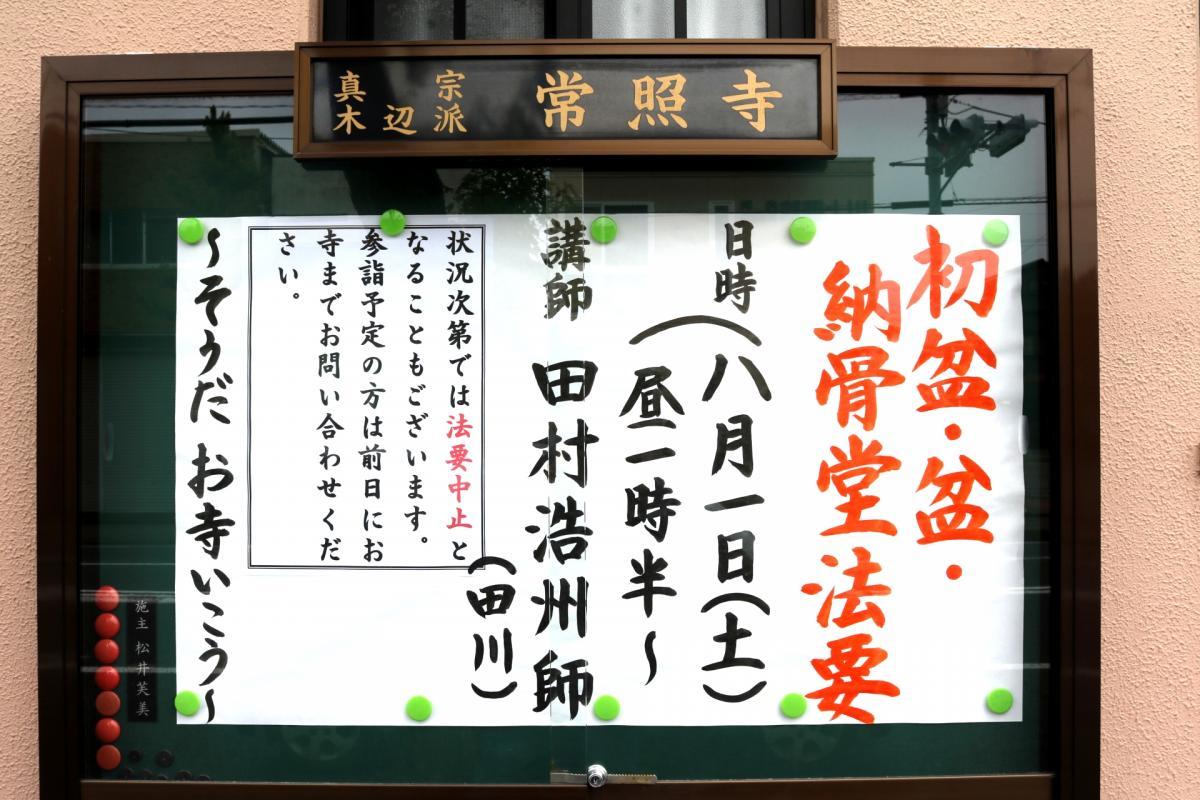 真宗
木辺派
常照寺
初盆・盆・
納骨堂法要
日時
八月一日(土)
昼一時半~
講師 田村浩州師
(田川)
状況次第では法要中止と
なることもございます。
参詣予定の方は前日にお
寺までお問い合わせくだ
さい。
~そうだ お寺いこう~
施主 松井芙美